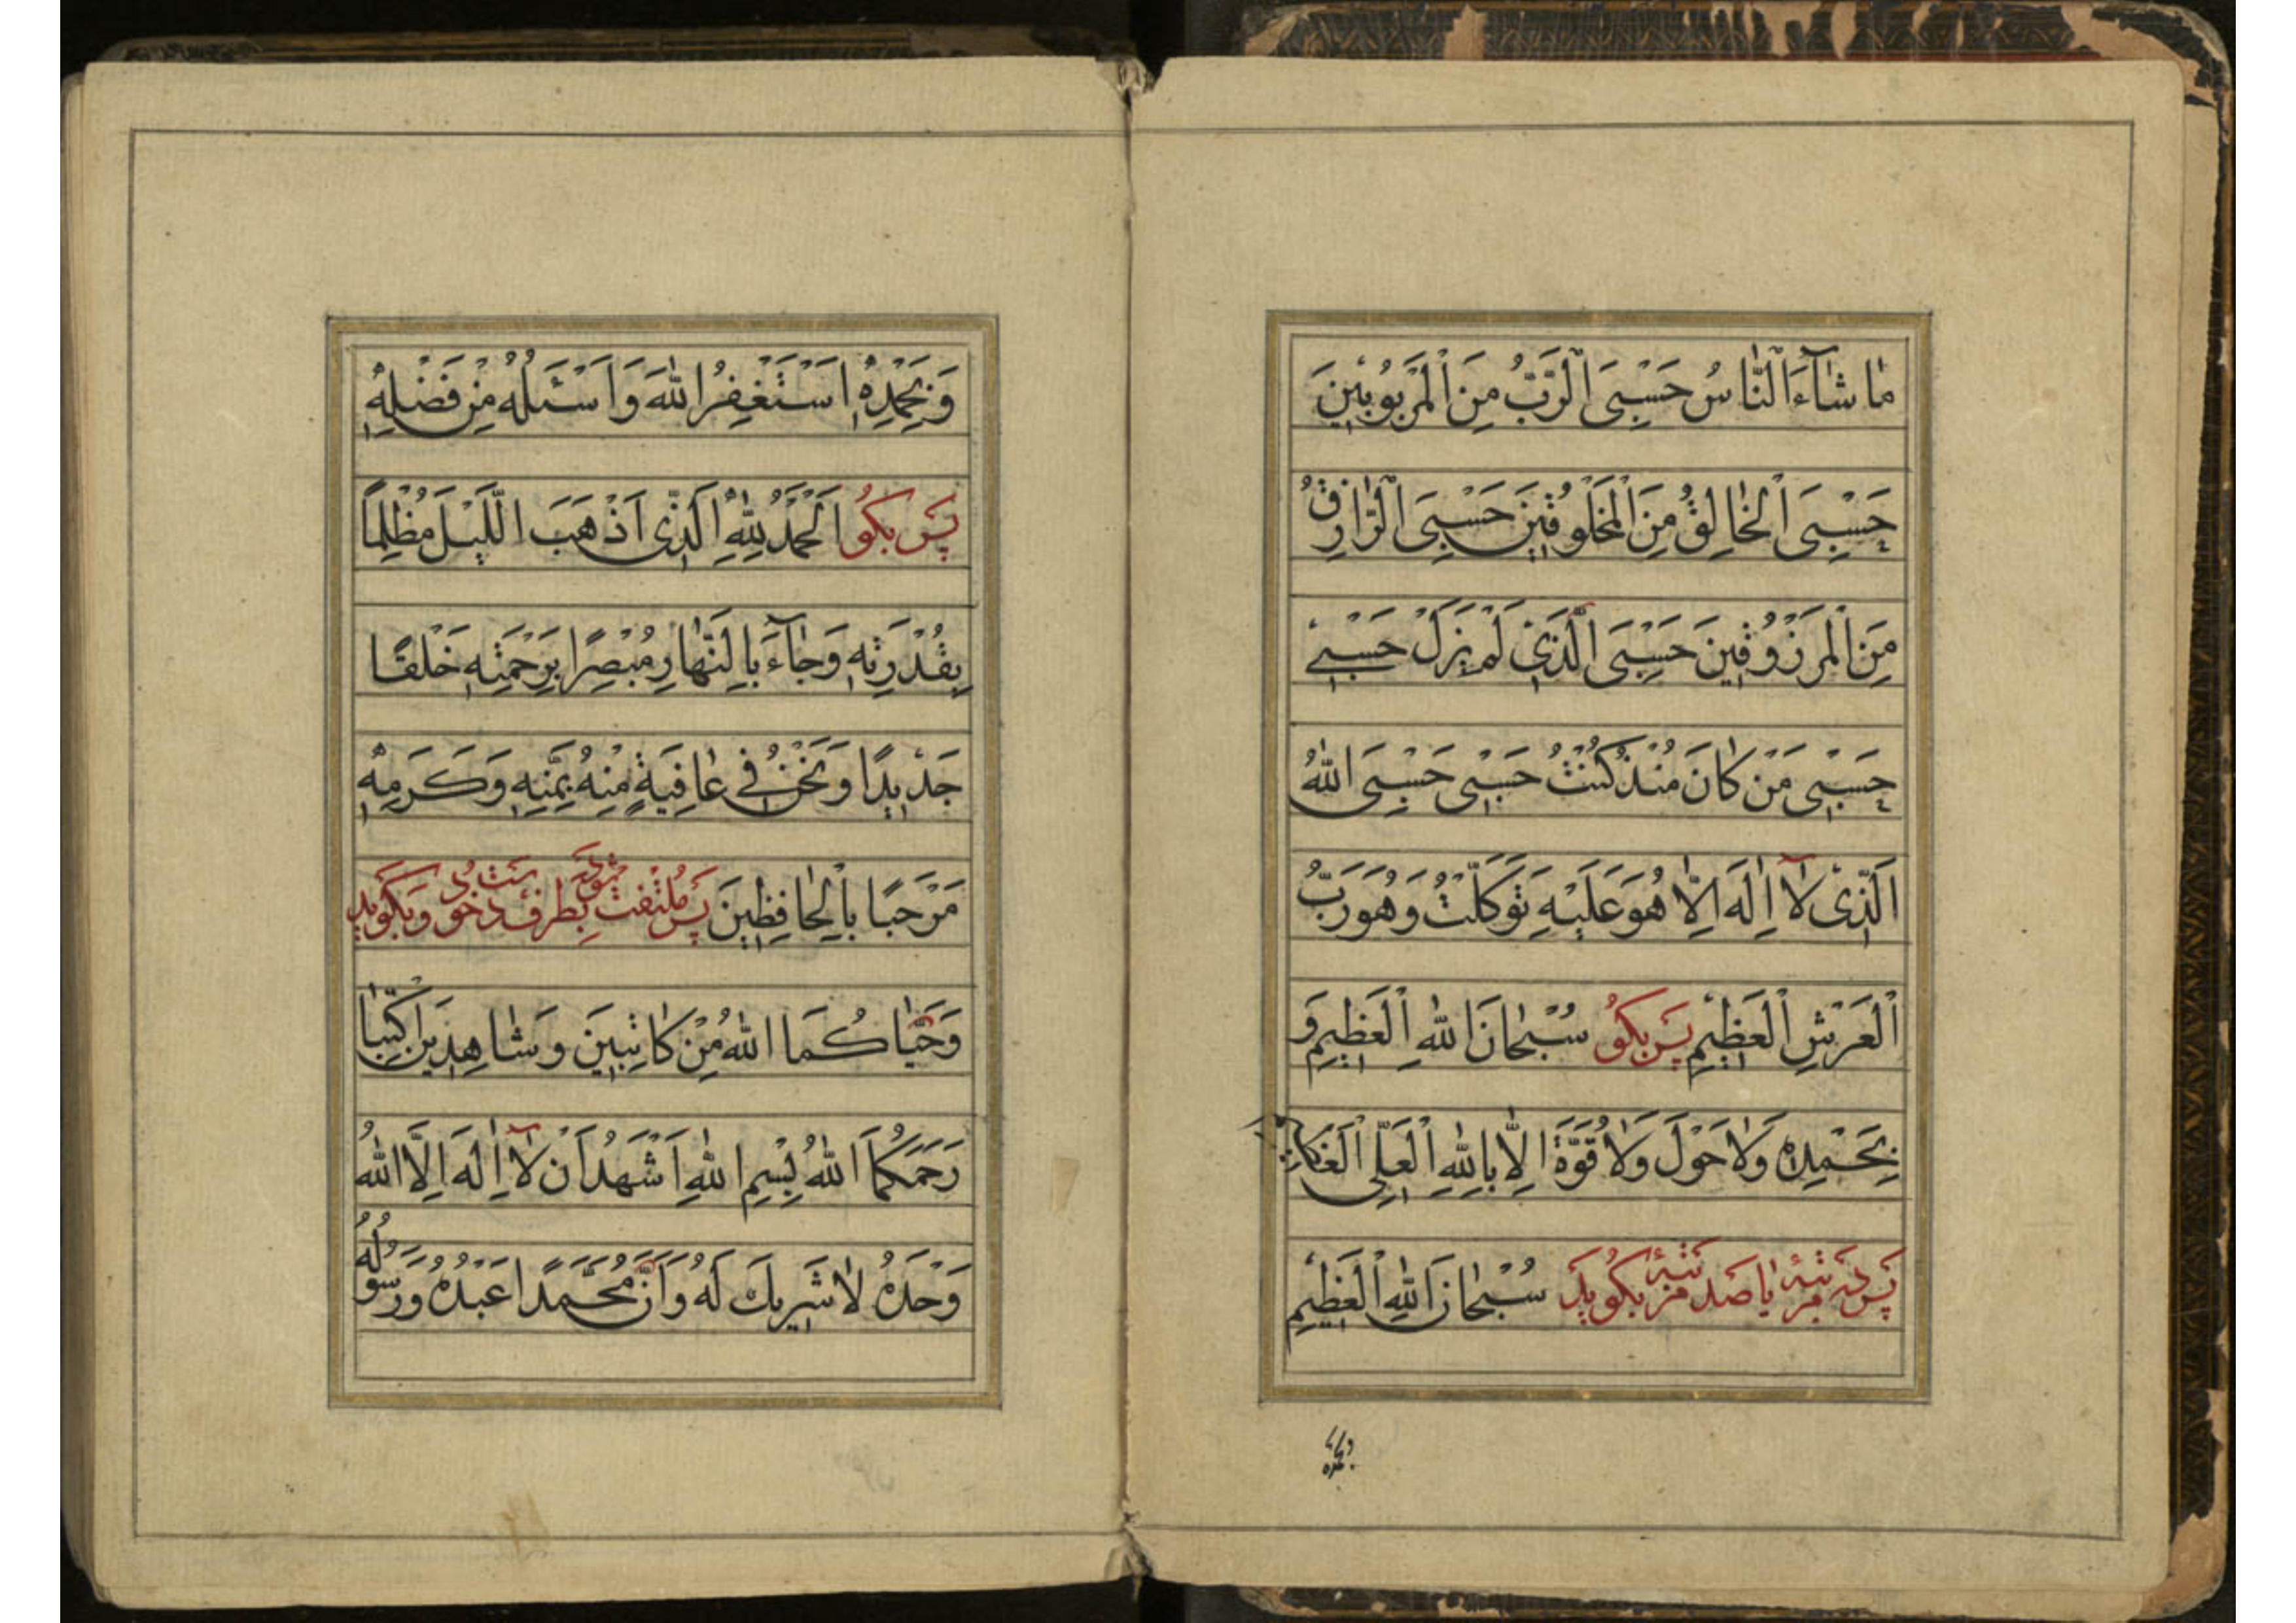 مٰا شٰآءَ النّٰاسُ حَسْبِىَ الرَّبُّ مِنَ الْمَرْبُوبٖينَ
حَسْبِىَ الْخٰالِقُ مِنَ الْمَخْلُوقٖينَ حَسْبِىَ الرّٰازِقُ
مِنَ الْمَرْزُوقٖينَ حَسْبِىَ الَّذٖى لَمْ يَزَلْ حَسْبٖى
حَسْبٖى مَنْ كٰانَ مُنْذُ كُنْتُ حَسْبٖى حَسْبِىَ اللّٰهُ
الَّذٖى لٰآ اِلٰهَ اِلّٰا هُوَ عَلَيْهِ تَوَكَّلْتُ وَهُوَ رَبُّ
الْعَرْشِ الْعَظٖيمِ پَس بِكُو سُبْحٰانَ اللّٰهِ الْعَظٖيمِ وَ
بِحَمْدِهٖ وَلٰا حَوْلَ وَلٰا قُوَّةَ اِلّٰا بِاللّٰهِ الْعَلِىِّ
پَس دَه مَرْتَبَه يٰا صَد مَرْتَبَه بِكُويَد سُبْحٰانَ اللّٰهِ الْعَظٖيمِ
وَبِحَمْدِهٖ اَسْتَغْفِرُ اللّٰهَ وَاَسْئَلُهُ مِنْ فَضْلِهٖ
پَس بِكُو اَلْحَمْدُ لِلّٰهِ الَّذٖى اَذْهَبَ اللَّيْلَ مُظْلِمًا
بِقُدْرَتِهٖ وَجٰآءَ بِالنَّهٰارِ مُبْصِرًا بِرَحْمَتِهٖ خَلْقًا
جَدٖيدًا وَنَحْنُ فٖى عٰافِيَةٍ مِنْهُ بِمَنِّهٖ وَكَرَمِهٖ
مَرْحَبًا بِالْحٰافِظٖينَ پَس مُلْتَفِت شَوَد بِطَرَف دَست خود وَبِكُويَد
وَحَيّٰاكُمَا اللّٰهُ مِنْ كٰاتِبَيْنِ وَشٰاهِدَيْنِ اكْتُبٰا
رَحِمَكُمَا اللّٰهُ بِسْمِ اللّٰهِ اَشْهَدُ اَنْ لٰآ اِلٰهَ اِلَّا اللّٰهُ
وَحْدَهُ لٰا شَرٖيكَ لَهُ وَاَنَّ مُحَمَّدًا عَبْدُهُ وَرَسُولُهُ